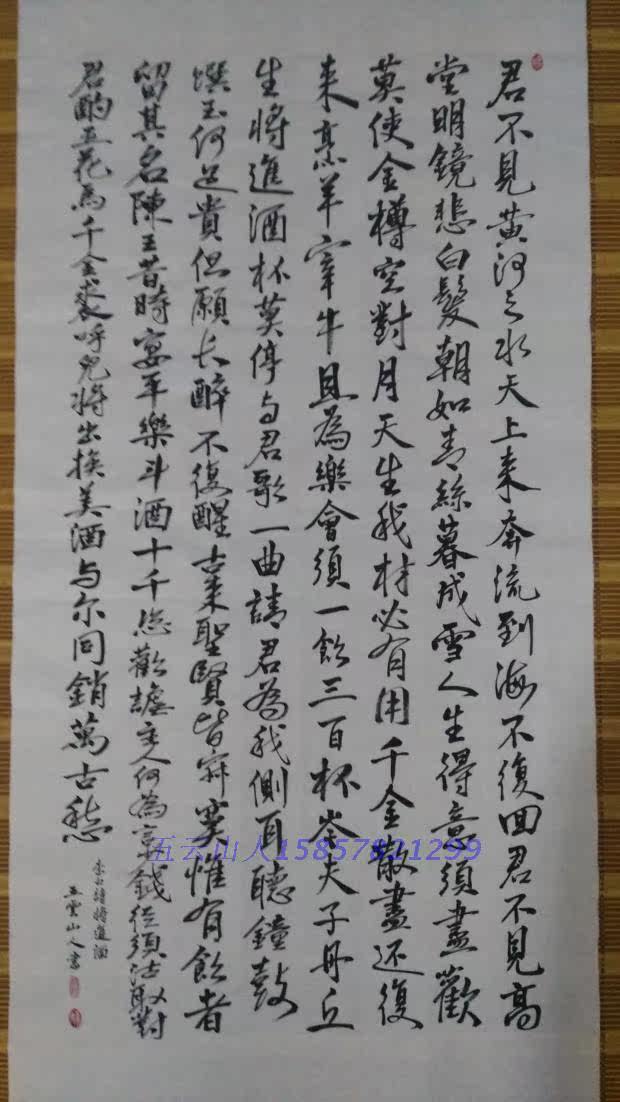 君不見黄河之水天上来奔流到海不復回君不見高
堂明鏡悲白髮朝如青絲暮成雪人生得意須盡歡
莫使金樽空對月天生我材必有用千金散盡还復
来烹羊宰牛且為樂會須一飲三百杯岑夫子丹丘
生將進酒杯莫停与君歌一曲請君為我側耳聽鐘鼓
饌玉何足貴但願长醉不復醒古来聖賢皆寂寞惟有飲者
留其名陳王昔時宴平樂斗酒十千恣歡謔主人何為言錢徑須沽取對
君酌五花馬千金裘呼兒將出换美酒与尔同銷萬古愁
李白詩將進酒
五雲山人書
五云山人15857821299